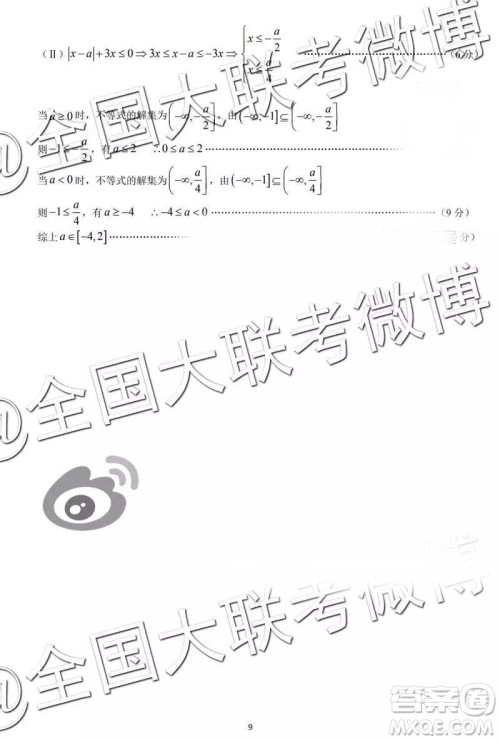 （Ⅱ）|x−a|+3x≤0⇒3x≤x−a≤−3x⇒{x≤−a/2 x≤a/4 ……（6分）
当a≥0时，不等式的解集为(−∞,−a/2]，由(−∞,−1]⊆(−∞,−a/2]
则−1≤−a/2，有a≤2 ∴0≤a≤2……
当a<0时，不等式的解集为(−∞,a/4]，由(−∞,−1]⊆(−∞,a/4]
则−1≤a/4，有a≥−4 ∴−4≤a<0……（9分）
综上a∈[−4,2]……分）
@全国大联考微博
@全国大联考微博
@全国大联考微博
答案圈
MXQE.COM
9